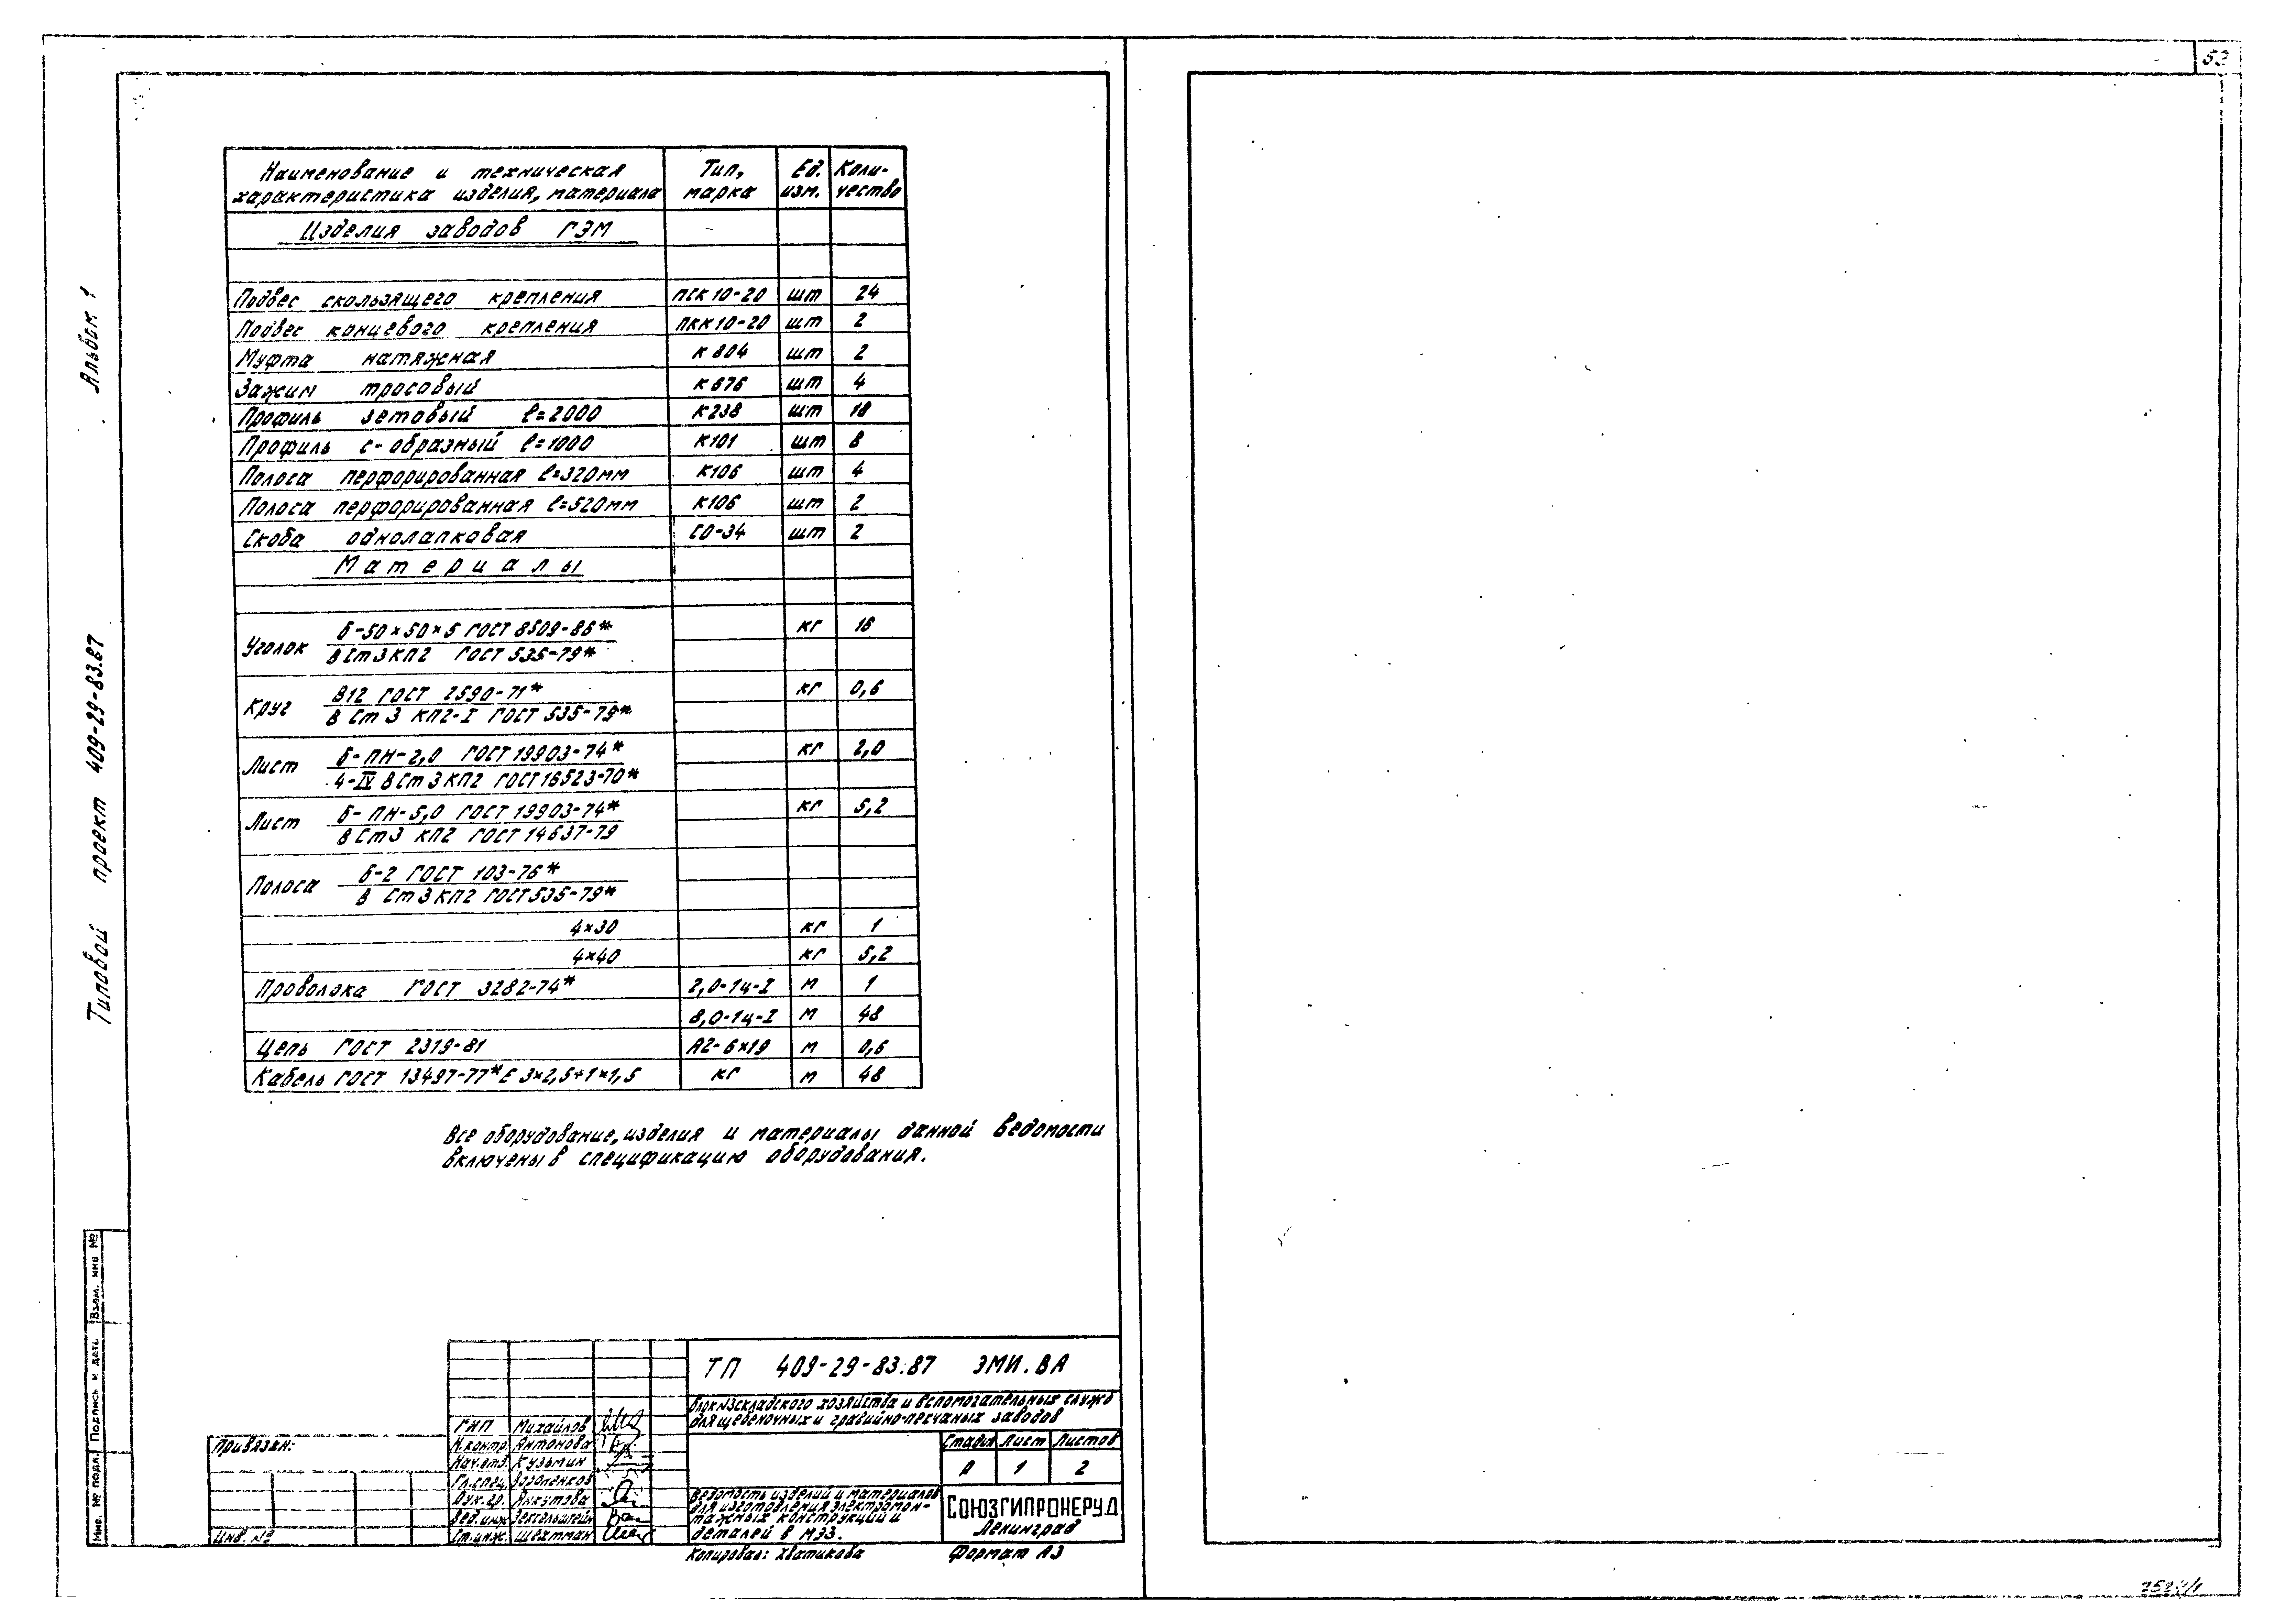 53
Альбом 1
Типовой проект 409-29-83.87
Наименование и техническая характеристика изделия, материала | Тип, марка | Ед. изм. | Коли-чество
Изделия заводов ГЭМ
Подвес скользящего крепления ПСК 10-20 шт 24
Подвес концевого крепления ПКК 10-20 шт 2
Муфта натяжная К 804 шт 2
Зажим тросовый К 676 шт 4
Профиль зетовый ℓ=2000 К238 шт 18
Профиль с-образный ℓ=1000 К101 шт 8
Полоса перфорированная ℓ=320мм К106 шт 4
Полоса перфорированная ℓ=520мм К106 шт 2
Скоба однолапковая СО-34 шт 2
Материалы
Уголок Б-50×50×5 ГОСТ 8509-86* кг 16
ВСт3КП2 ГОСТ 535-79*
Круг В12 ГОСТ 2590-71* кг 0,6
ВСт3 КП2-I ГОСТ 535-79*
Лист Б-ПН-2,0 ГОСТ 19903-74* кг 2,0
4-IV ВСт3КП2 ГОСТ 16523-70*
Лист Б-ПН-5,0 ГОСТ 19903-74* кг 5,2
ВСт3 КП2 ГОСТ 14637-79
Полоса Б-2 ГОСТ 103-76*
В Ст3КП2 ГОСТ 535-79*
4×30 кг 1
4×40 кг 5,2
Проволока ГОСТ 3282-74* 2,0-1ц-I м 1
8,0-1ц-I м 48
Цепь ГОСТ 2319-81 А2-6×19 м 0,6
Кабель ГОСТ 13497-77*Е 3×2,5+1×1,5 КГ м 48
Все оборудование, изделия и материалы данной ведомости
включены в спецификацию оборудования.
Инв. № подл. Подпись и дата Взам. инв №
Привязан:
Инв. №
ТП 409-29-83.87 ЭМИ.ВА
Блоки складского хозяйства и вспомогательных служб
для щебеночных и гравийно-песчаных заводов
ГИП Михайлов
Н.контр. Антонова
Нач.отд. Кузьмин
Гл.спец.
Рук.гр. Анкутова
Вед.инж.
Ст.инж. Шехтман
Стадия Лист Листов
Р 1 2
Ведомость изделий и материалов
для изготовления электромон-
тажных конструкций и
деталей в МЭЗ.
СОЮЗГИПРОНЕРУД
Ленинград
Копировал: Хватикова Формат А3